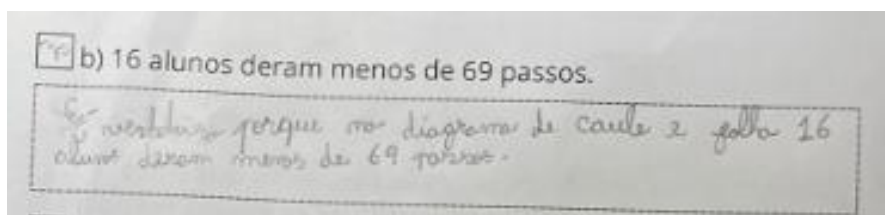 b) 16 alunos deram menos de 69 passos.
É verdadeiro porque no diagrama de caule e folha 16
alunos deram menos de 69 passos.